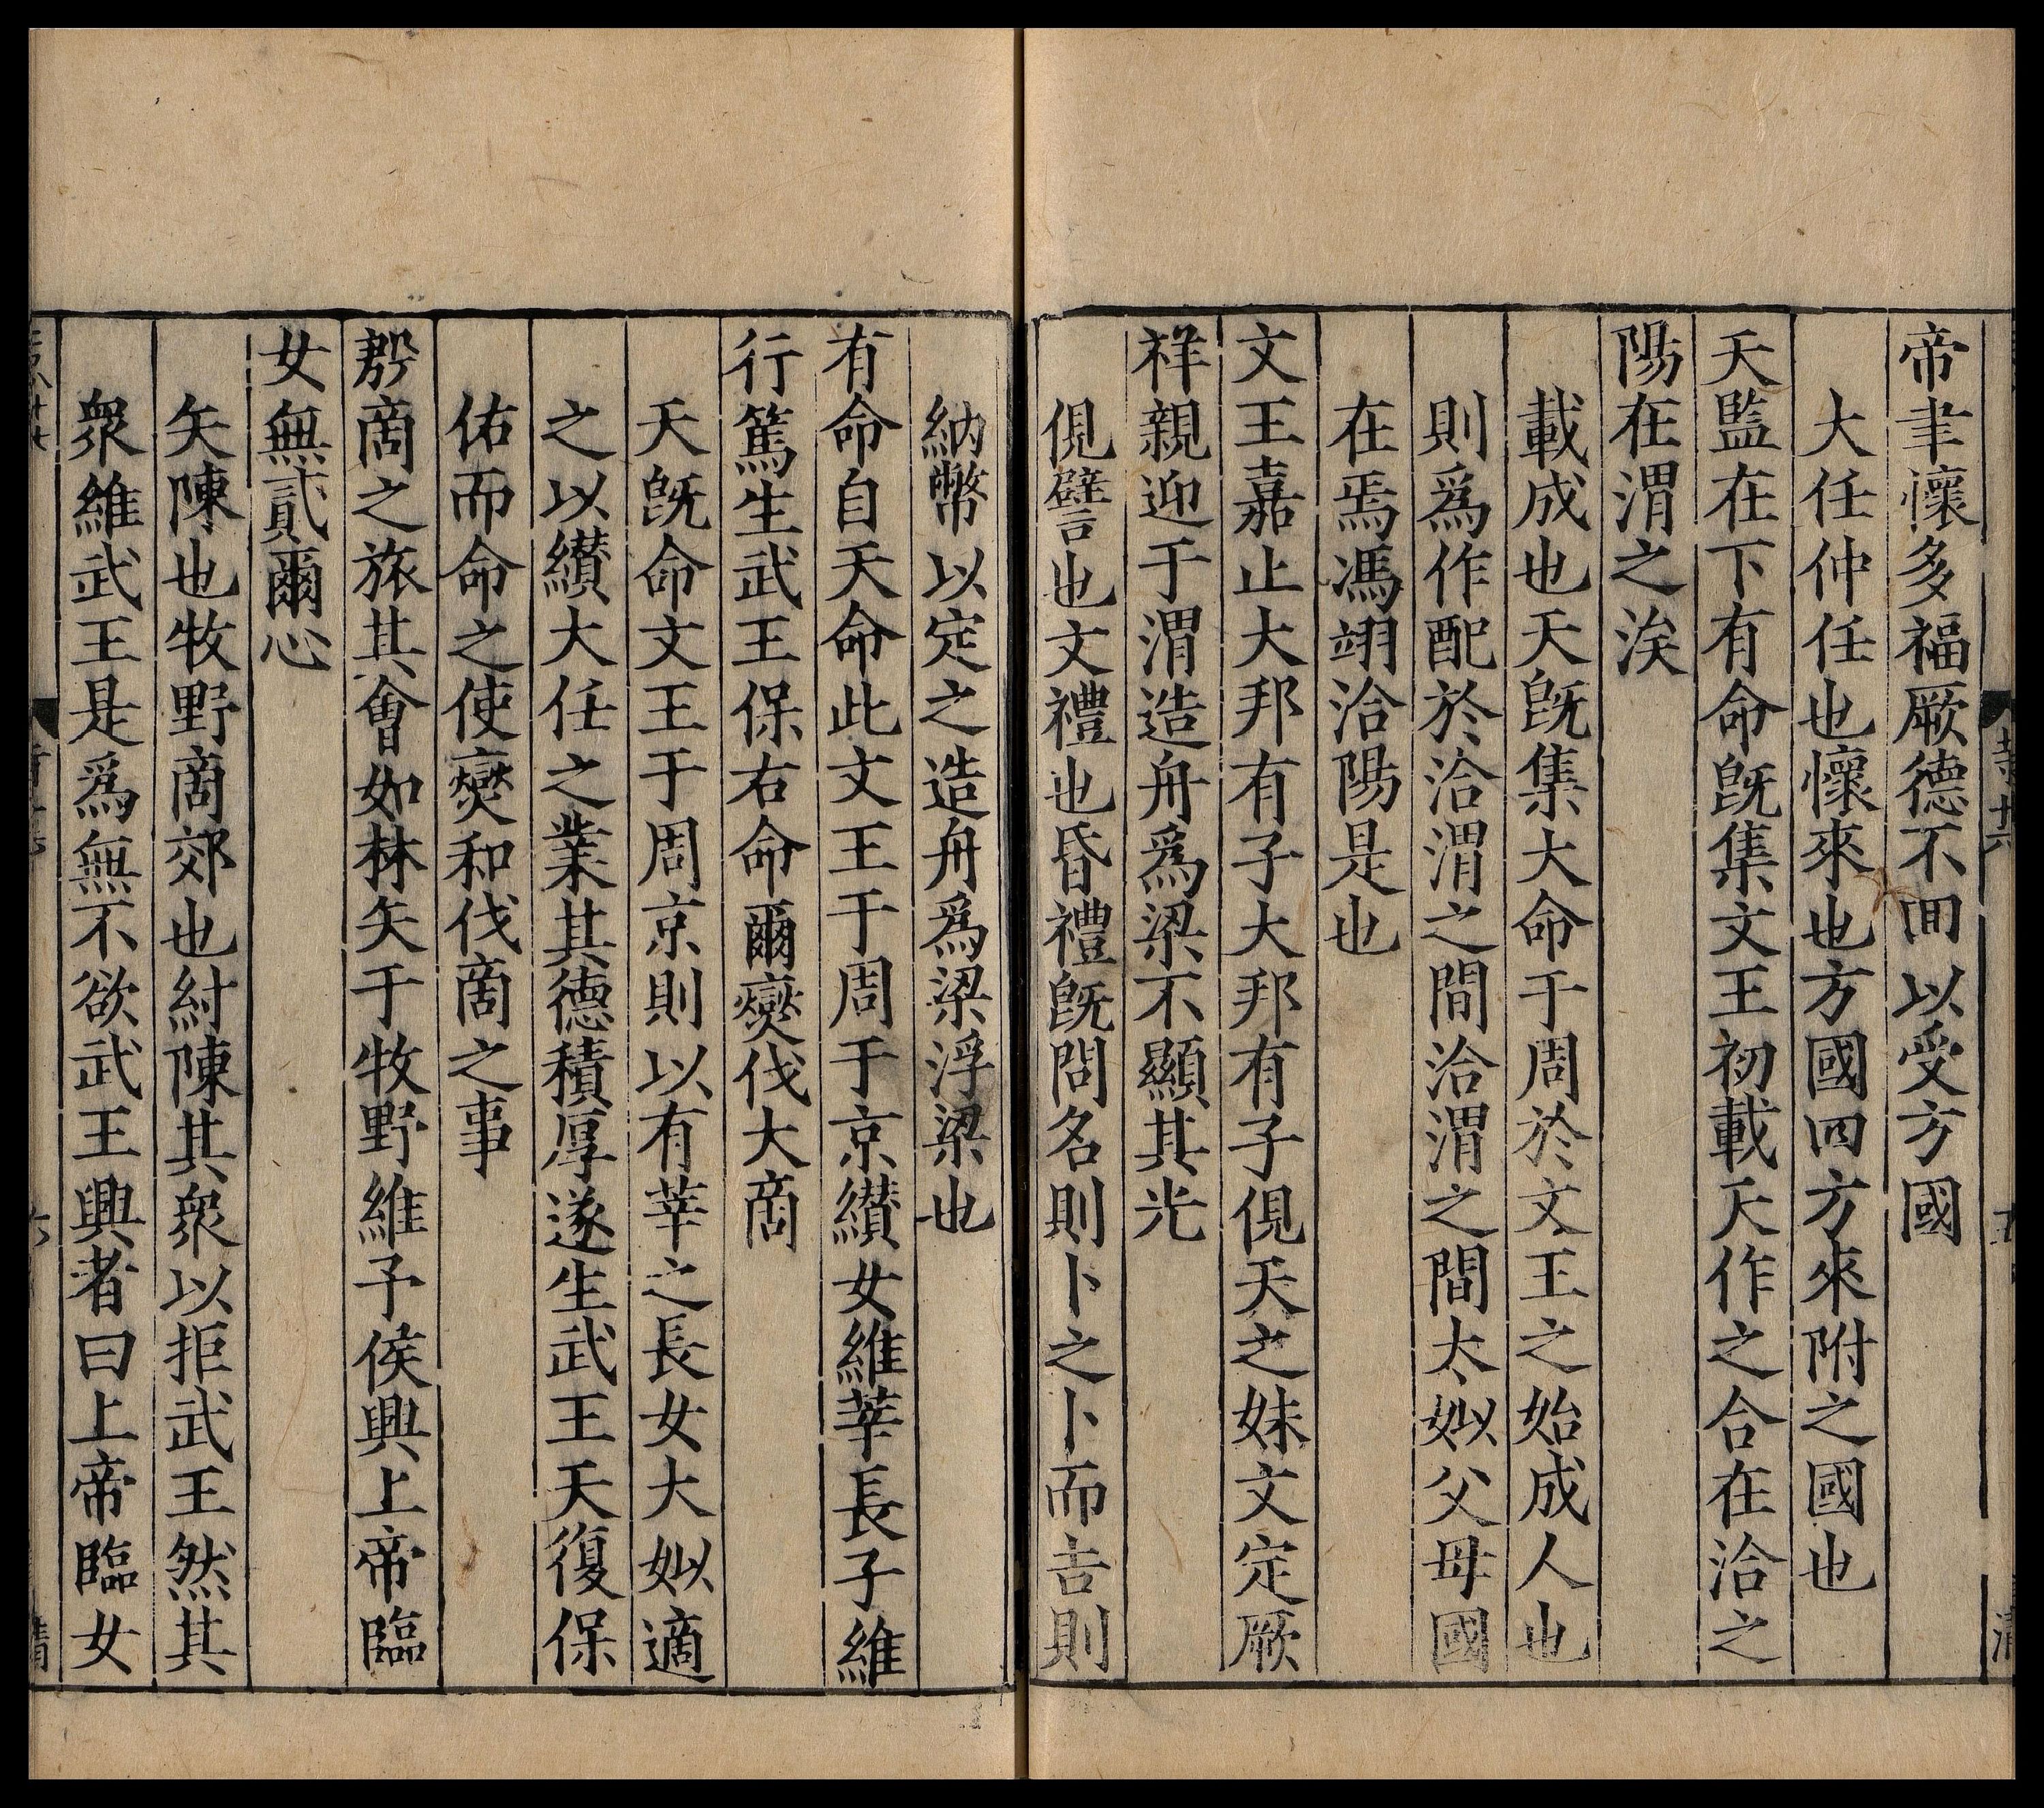 帝聿懷多福厥德不回以受方國
大任仲任也懷來也方國四方來附之國也
天監在下有命旣集文王初載天作之合在洽之
陽在渭之涘
載成也天旣集大命于周於文王之始成人也
則爲作配於洽渭之間洽渭之間太姒父母國
在焉馮翊洽陽是也
文王嘉止大邦有子大邦有子俔天之妹文定厥
祥親迎于渭造舟爲梁不顯其光
俔譬也文禮也昏禮旣問名則卜之卜而吉則
納幣以定之造舟爲梁浮梁也
有命自天命此文王于周于京纘女維莘長子維
行篤生武王保右命爾燮伐大商
天旣命文王于周京則以有莘之長女大姒適
之以纘大任之業其德積厚遂生武王天復保
佑而命之使燮和伐商之事
殷商之旅其會如林矢于牧野維予侯興上帝臨
女無貳爾心
矢陳也牧野商郊也紂陳其衆以拒武王然其
衆維武王是爲無不欲武王興者曰上帝臨女